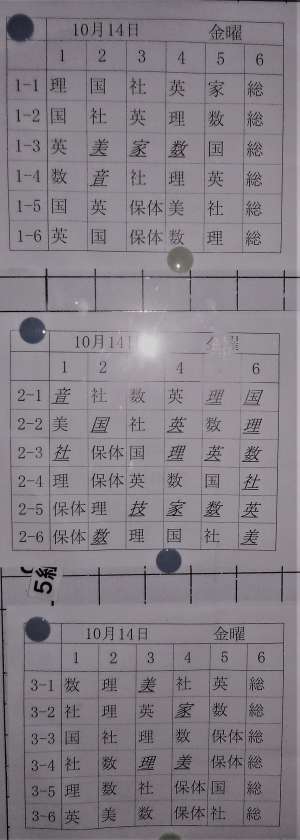 10月14日 金曜
1 2 3 4 5 6
1-1 理 国 社 英 家 総
1-2 国 社 英 理 数 総
1-3 英 美 家 数 国 総
1-4 数 音 社 理 英 総
1-5 国 英 保体 美 社 総
1-6 英 国 保体 数 理 総
10月14日 金曜
1 2 4 6
2-1 音 社 数 英 理 国
2-2 美 国 社 英 数 理
2-3 社 保体 国 理 英 数
2-4 理 保体 英 数 国 社
2-5 保体 理 技 家 数 英
2-6 保体 数 理 国 社 美
5組
10月14日 金曜
1 2 3 4 5 6
3-1 数 理 美 社 英 総
3-2 社 理 英 家 数 総
3-3 国 社 理 数 保体 総
3-4 社 数 理 美 保体 総
3-5 理 数 社 保体 国 総
3-6 英 美 数 保体 社 総